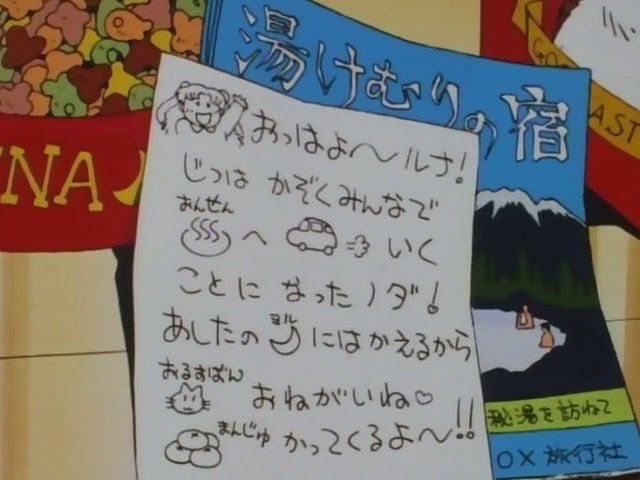 湯けむりの宿
おっはよ〜ルナ!
じつは かぞくみんなで
おんせん
へ いく
ことに なったノダ!
あしたの にはかえるから
ヨル
おるすばん
おねがいね♡
まんじゅ かってくるよ〜!!
秘湯を訪ねて
OX旅行社
NA
AST